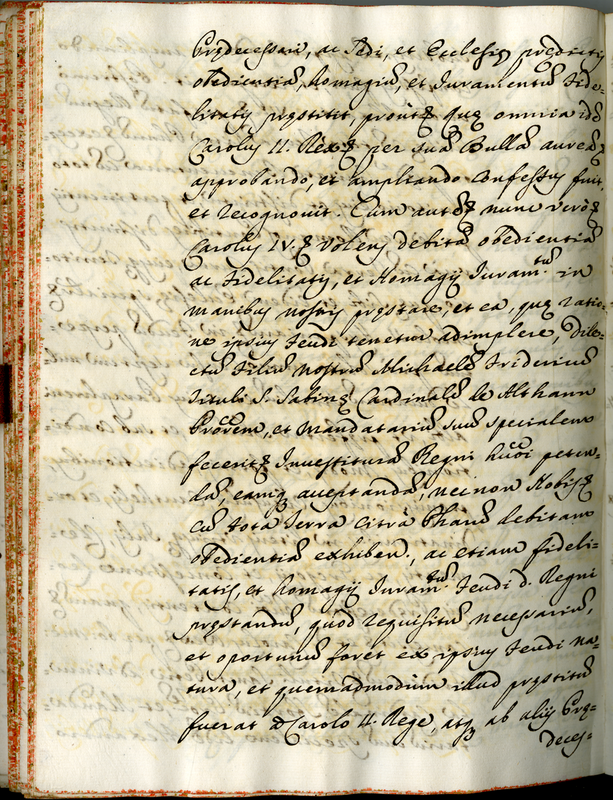 Prędecessori, ac Sedi, et Ecclesię prędictis
obedientiã, homagiũ, et Juramentũ Fide-
litatis pręstitit, prout ꝫ quę omnia idẽ
Carolus II. Rex ꝫ per suã Bullã aureã ꝫ
approbando, et ampliando Confessus fuit
et recognovit. Cum autẽ ꝫ nunc verò ꝫ
Carolus IV. ꝫ volens debitã obedientiã
ac Fidelitatis, et Homagij Juram.tũ in
manibus nostris pręstare, et ea, quę ratio-
ne ipsius feudi tenetur adimplere, dile-
ctũ Filiũ nostrũ Michaelẽ Fridericũ
Tituli S. Sabinę Cardinalẽ de Althann
Pro͠rem, et Mandatariũ suũ specialem
fecerit ꝫ Investiturã Regni hu͠oi peten-
dã, eamq̃ acceptandã, nec non Nobis ꝫ
cũ tota Terra citrà Pharũ debitam
obedientiã exhiben., ac etiam fideli-
tatis, et homagij Juram.tũ feudi d. Regni
pręstandũ, quod requisitũ necessariũ,
et oportunũ foret ex ipsius feudi na-
tura, et quemadmodùm illud pręstitũ
fuerat à Carolo II. Rege, atq̃ ab alijs Prę-
deces-